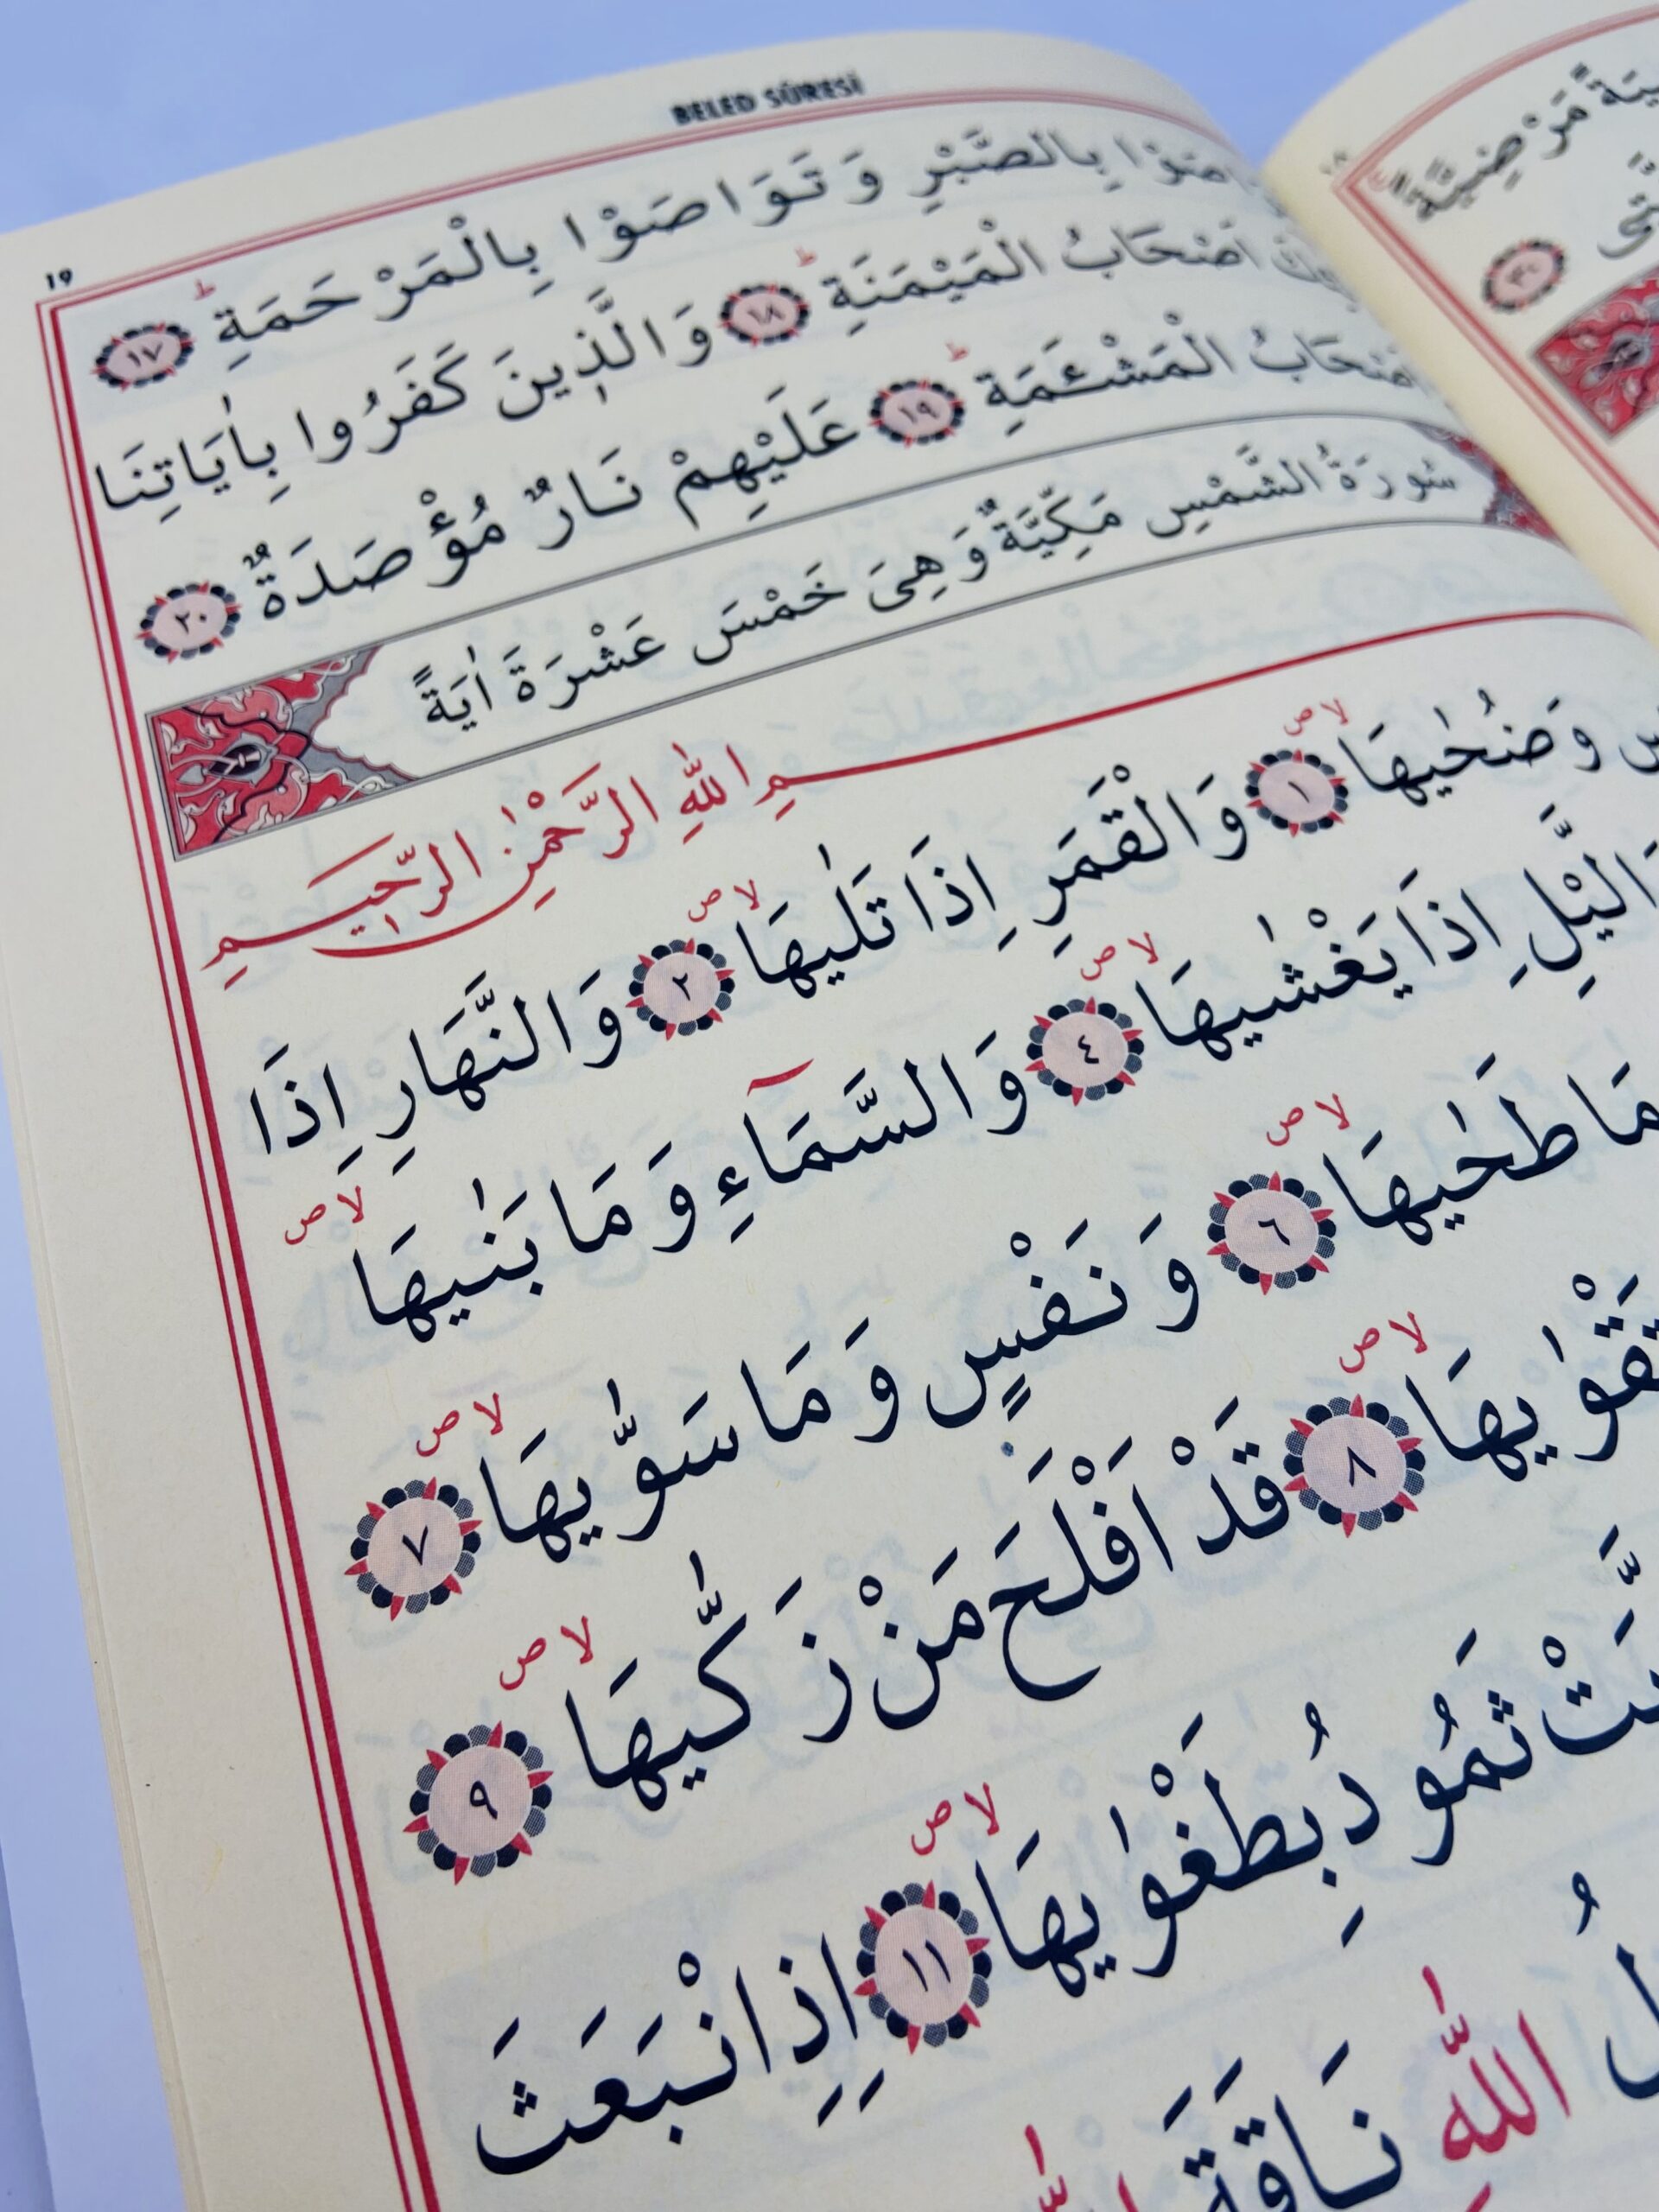 BELED SÛRESİ
١٩
بِالصَّبْرِ وَتَوَاصَوْا بِالْمَرْحَمَةِ ۜ ﴿١٧﴾
اَصْحَابُ الْمَيْمَنَةِ ﴿١٨﴾ وَالَّذٖينَ كَفَرُوا بِاٰيَاتِنَا
اَصْحَابُ الْمَشْـَٔمَةِ ﴿١٩﴾ عَلَيْهِمْ نَارٌ مُؤْصَدَةٌ ﴿٢٠﴾
سُورَةُ الشَّمْسِ مَكِّيَّةٌ وَهِىَ خَمْسَ عَشْرَةَ اٰيَةً
بِسْمِ اللّٰهِ الرَّحْمٰنِ الرَّحٖيمِ
وَضُحٰيهَا ﴿١﴾ وَالْقَمَرِ اِذَا تَلٰيهَا ﴿٢﴾ وَالنَّهَارِ اِذَا
وَالَّيْلِ اِذَا يَغْشٰيهَا ﴿٤﴾ وَالسَّمَآءِ وَمَا بَنٰيهَا
مَا طَحٰيهَا ﴿٦﴾ وَنَفْسٍ وَمَا سَوّٰيهَا ﴿٧﴾
﴿٨﴾ قَدْ اَفْلَحَ مَنْ زَكّٰيهَا ﴿٩﴾
ثَمُودُ بِطَغْوٰيهَا ﴿١١﴾ اِذِ انْبَعَثَ
اللّٰهِ نَاقَةَ
مَرْضِيَّةً